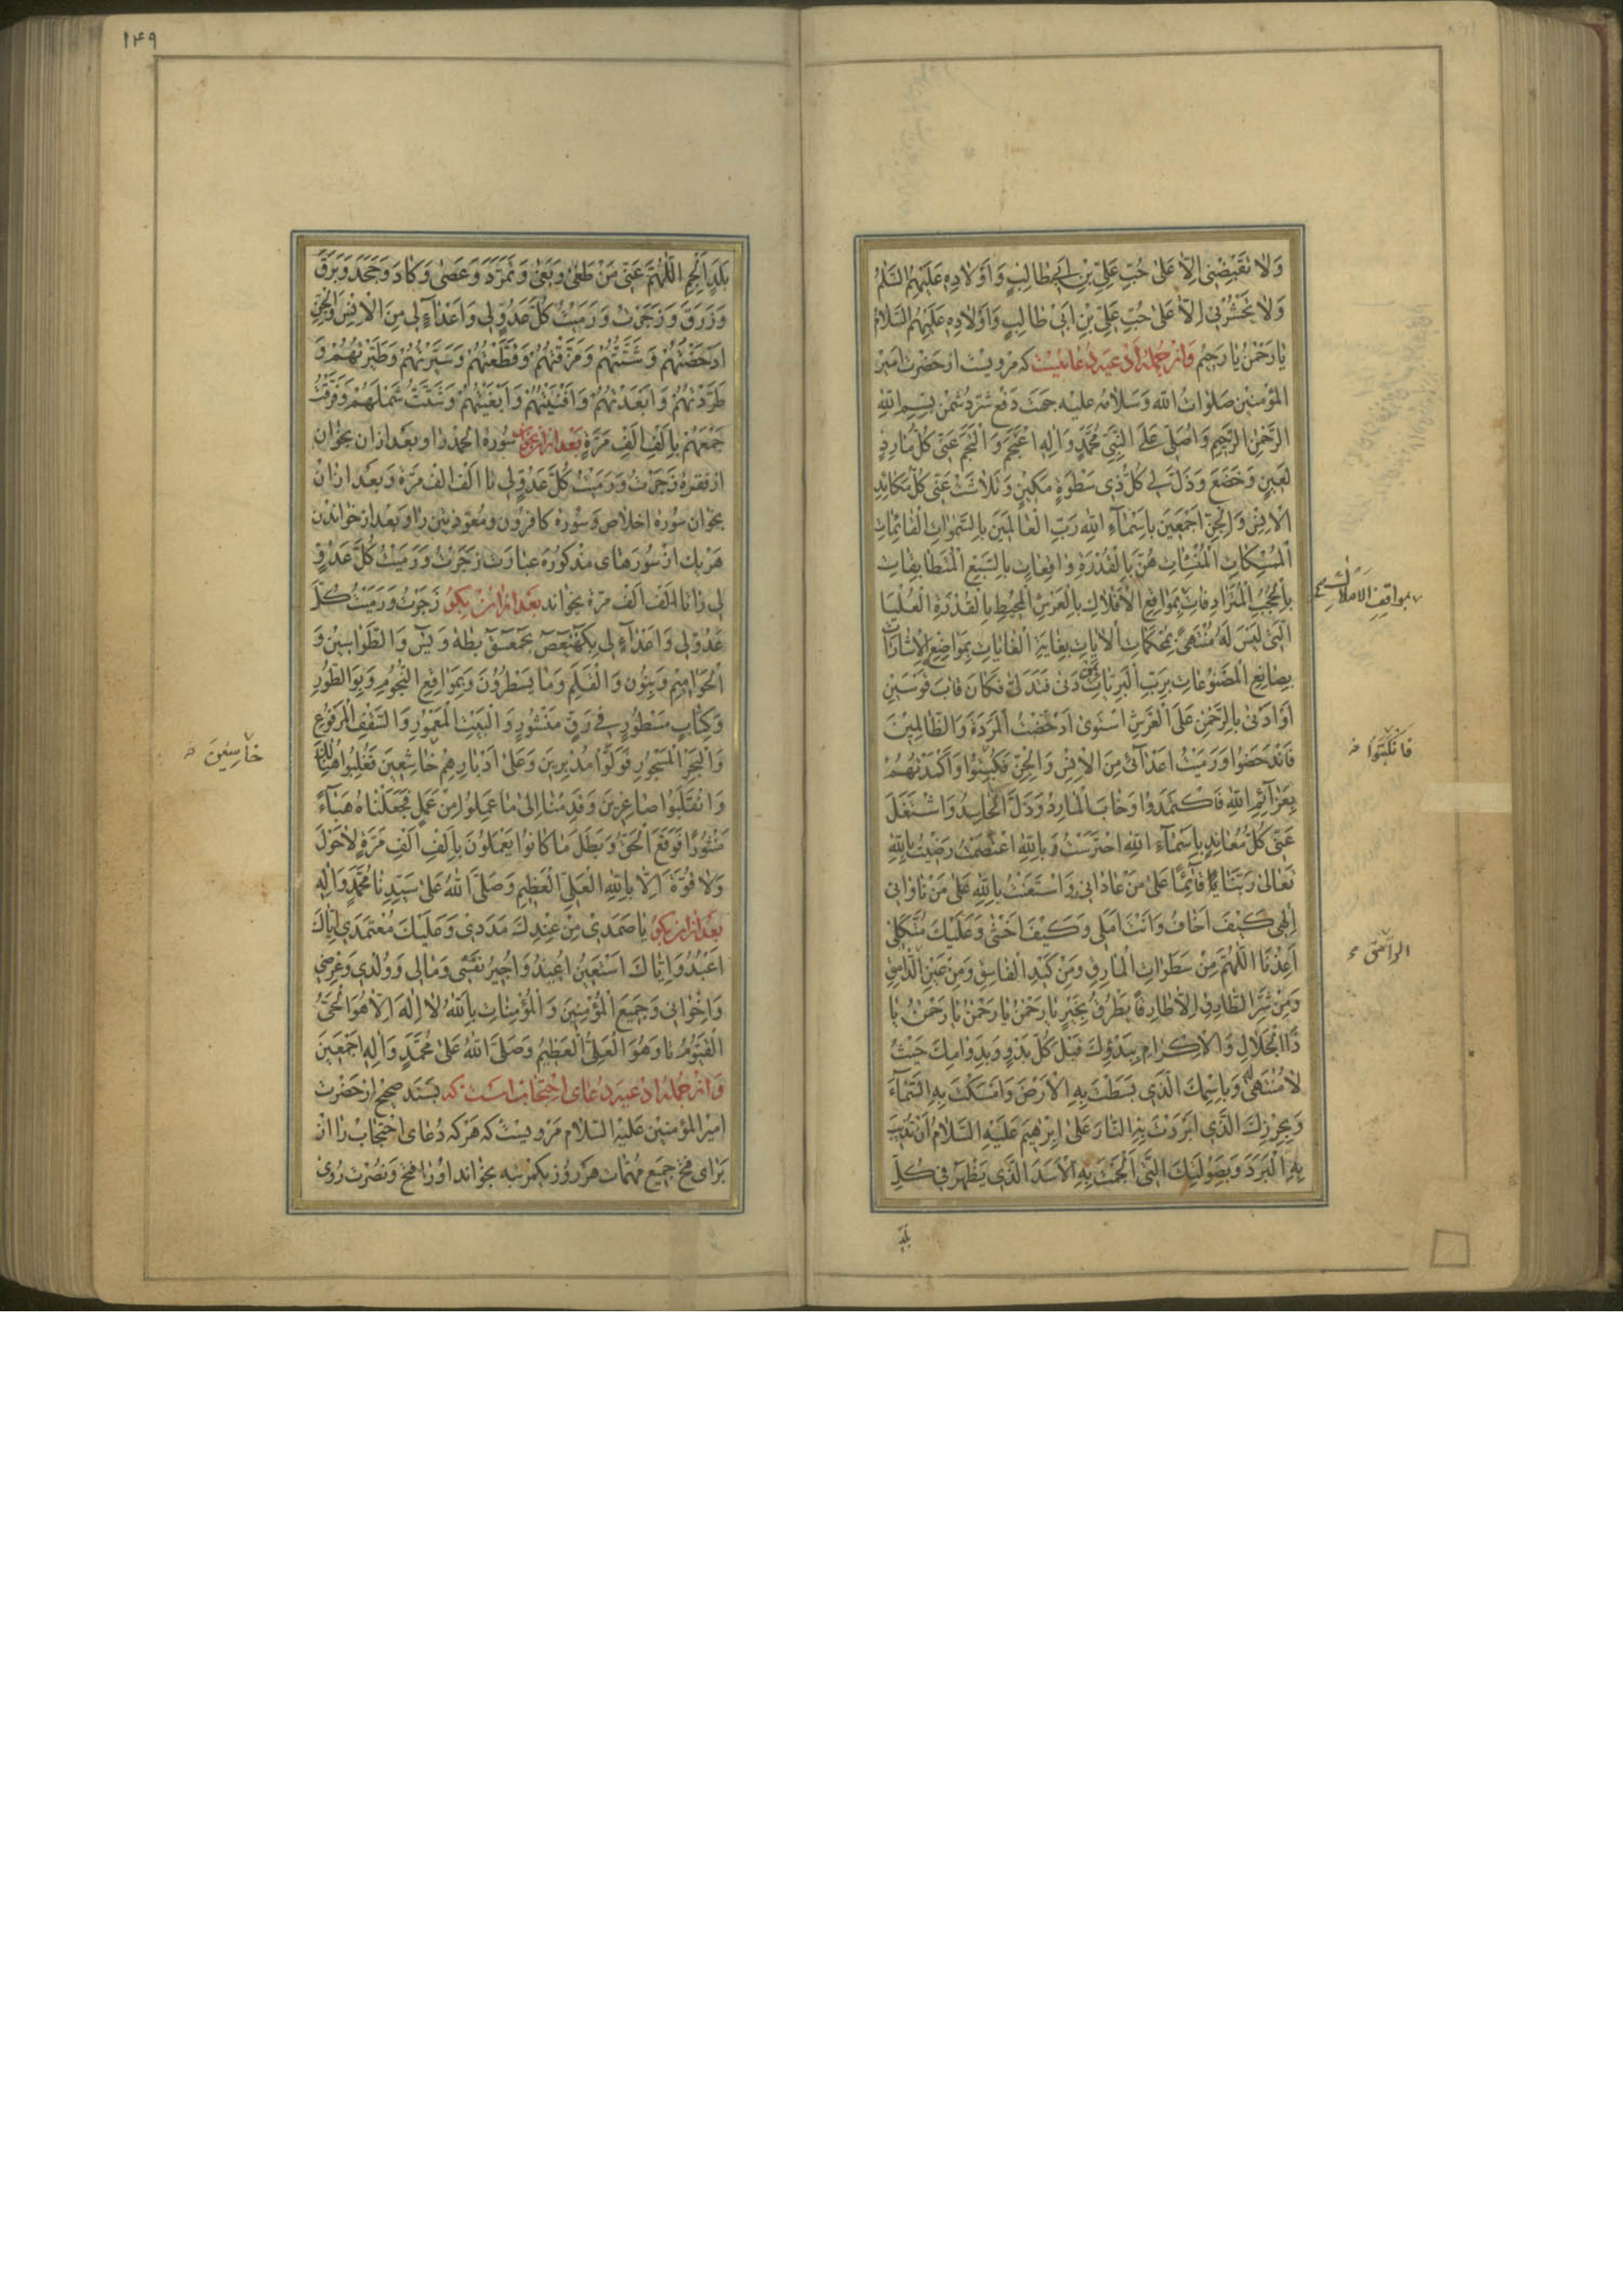 وَلا تَقْبِضْنى اِلّا عَلى حُبِّ عَلِىِّ بْنِ اَبى طالِبٍ وَاَوْلادِهِ عَلَيْهِمُ السَّلامُ
وَلا تَحْشُرْنى اِلّا عَلى حُبِّ عَلِىِّ بْنِ اَبى طالِبٍ وَاَوْلادِهِ عَلَيْهِمُ السَّلامُ
يا رَحْمنُ يا رَحيمُ وَاز جمله ادعيه دعائيست كه مرويست از حضرت امير
المؤمنين صلوات الله وسلامه عليه جهت دفع شرّ دشمن بِسْمِ اللهِ
الرَّحْمنِ الرَّحيمِ وَاُصَلّى عَلَى النَّبِىِّ مُحَمَّدٍ وَالِهِ اَعْجَمَ وَالْجَمَ عَنّى كُلُّ مارِدٍ
لَعينٍ وَخَضَعَ وَذَلَّ لى كُلُّ ذى سَطْوَةٍ مَكينٍ وَتَلاشَتْ عَنّى كُلُّ مَكائِدِ
الْاِنْسِ وَالْجِنِّ اَجْمَعينَ بِاَسْماءِ اللهِ رَبِّ الْعالَمينَ بِالسَّمواتِ الْقائِماتِ
هُنَّ بِالْقُدْرَةِ واقِفاتٍ بِالسَّبْعِ الْمُتَطابِقاتِ
بِالْحُجُبِ الْمُتَرادِفاتِ بِمَواقِعِ الْاَفْلاكِ بِالْعَرْشِ الْمُحيطِ بِالْقُدْرَةِ الْعُلْيا
الَّتى لَيْسَ لَهُ مُنْتَهى بِمُحْكَماتِ الْاياتِ بِغايَةِ الْغاياتِ بِمَواضِعِ الْاِشاراتِ
بِصانِعِ الْمَصْنُوعاتِ بِرَبِّ الْبَرِيّاتِ دَنى فَتَدَلّى فَكانَ قابَ قَوْسَيْنِ
اَوْ اَدْنى بِالرَّحْمنِ عَلَى الْعَرْشِ اسْتَوى اَدْحَضْتُ الْمَرَدَةَ وَالظّالِمينَ
فَانْدَحَضُوا وَرَمَيْتُ اَعْدائى مِنَ الْاِنْسِ وَالْجِنِّ فَكُبِتُوا وَاَكْمَدْتُهُمْ
بِعَزائِمِ اللهِ فَاكْتَمَدُوا وَخابَ الْمارِدُ وَذَلَّ الْحاسِدُ وَاشْتَغَلَ
عَنّى كُلُّ مُعانِدٍ بِاَسْماءِ اللهِ احْتَرَسْتُ وَبِاللهِ اعْتَصَمْتُ رَضيتُ بِاللهِ
تَعالى رَبَّنا قائِمًا عَلى مَنْ عادانى وَاسْتَعَنْتُ بِاللهِ عَلى مَنْ ناوانى
اِلهى كَيْفَ اَخافُ وَاَنْتَ اَمَلى وَكَيْفَ اَخْشى وَعَلَيْكَ مُتَّكَلى
اَعِذْنَا اللّهُمَّ مِنْ سَطَواتِ الْمارِقِ وَمِنْ كَيْدِ الْفاسِقِ وَمِنْ عَيْنِ
وَمِنْ شَرِّ الطّارِقِ اِلّا طارِقًا يَطْرُقُ بِخَيْرٍ يا رَحْمنُ يا رَحْمنُ يا رَحْمنُ يا
ذَا الْجَلالِ وَالْاِكْرامِ بِبَدْوِكَ قَبْلَ كُلِّ بَدْوٍ وَبِدَوامِكَ حَيْثُ
لا مُنْتَهى لَهُ وَبِاسْمِكَ الَّذى بَسَطْتَ بِهِ الْاَرْضَ وَاَمْسَكْتَ بِهِ السَّماءَ
وَبِحِرْزِكَ الَّذى اَبْرَدْتَ بِهِ النّارَ عَلى اِبْرهيمَ عَلَيْهِ السَّلامُ
بِهِ الْبَرْدَ وَبِصَوْلَتِكَ الَّتى اَلْجَمْتَ بِهِ الْاَسَدَ الَّذى يَظْهَرُ فى كُلِّ
بمواقف الاملاك
فانكبتوا
الرامق
بلد
١٤٩
بَلَدٍ اَلْجِمِ اللّهُمَّ عَنّى مَنْ طَغى وَبَغى وَتَمَرَّدَ وَعَصى وَكادَ وَجَحَدَ وَبَرَقَ
وَزَرَقَ وَزَجَرْتُ وَرَمَيْتُ كُلَّ عَدُوٍّ لى وَاَعْداءٍ لى مِنَ الْاِنْسِ وَالْجِنِّ
اَدْحَضْتُهُمْ وَشَتَّتُّهُمْ وَمَزَّقْتُهُمْ وَقَطَّعْتُهُمْ وَسَيَّرْتُهُمْ وَطَيَّرْتُهُمْ وَ
طَرَدْتُهُمْ وَاَبْعَدْتُهُمْ وَاَفْنَيْتُهُمْ وَشَتَّتُّ شَمْلَهُمْ وَفَرَّقْتُ
جَمْعَهُمْ بِاَلْفِ اَلْفِ مَرَّةٍ بعد ازان بخوان سورۀ الحمد را و بعد ازان بخوان
از فقره زَجَرْتُ وَرَمَيْتُ كُلَّ عَدُوٍّ لى تا الف الف مَرّة وبعد ازان
بخوان سورۀ اخلاص و سورۀ كافرون و معوذتين را و بعد از خواندن
هريك از سورهاى مذكوره عبارت زَجَرْتُ وَرَمَيْتُ كُلَّ عَدُوٍّ
لى را تا الف الف مرّة بخواند بعد ازان بگو زَجَرْتُ وَرَمَيْتُ كُلَّ
عَدُوٍّ لى وَاَعْداءٍ لى بِكهيعص بِحمعسق بِطه وَيس وَالطَّواسينَ وَ
الْحَواميمِ وَبِنُون وَالْقَلَمِ وَما يَسْطُرُونَ وَبِمَواقِعِ النُّجُومِ وَبِوَالطُّورِ
وَكِتابٍ مَسْطُورٍ فى رَقٍّ مَنْشُورٍ وَالْبَيْتِ الْمَعْمُورِ وَالسَّقْفِ الْمَرْفُوعِ
وَالْبَحْرِ الْمَسْجُورِ فَوَلَّوْا مُدْبِرينَ وَعَلى اَدْبارِهِمْ خاشِعينَ فَغُلِبُوا هُنالِكَ
وَانْقَلَبُوا صاغِرينَ وَقَدِمْنا اِلى ما عَمِلُوا مِنْ عَمَلٍ فَجَعَلْناهُ هَباءً
مَنْثُورًا فَوَقَعَ الْحَقُّ وَبَطَلَ ما كانُوا يَعْمَلُونَ بِاَلْفِ اَلْفِ مَرَّةٍ لا حَوْلَ
وَلا قُوَّةَ اِلّا بِاللهِ الْعَلِىِّ الْعَظيمِ وَصَلَّى اللهُ عَلى سَيِّدِنا مُحَمَّدٍ وَالِهِ
بعد ازان بگو يا صَمَدى مِنْ عِنْدِكَ مَدَدى وَعَلَيْكَ مُعْتَمَدى اِيّاكَ
اَعْبُدُ وَاِيّاكَ اَسْتَعينُ اُعيذُ وَاُجيرُ نَفْسى وَمالى وَوُلْدى وَعِرْضى
وَاِخْوانى وَجَميعَ الْمُؤْمِنينَ وَالْمُؤْمِناتِ بِاللهُ لا اِلهَ اِلّا هُوَ الْحَىُّ
الْقَيُّومُ تا وَهُوَ الْعَلِىُّ الْعَظيمُ وَصَلَّى اللهُ عَلى مُحَمَّدٍ وَالِهِ اَجْمَعينَ
وَاز جمله ادعيه دعاى احتجاب است كه بسند صحيح از حضرت
امير المؤمنين عليه السلام مرويست كه هركه دعاى احتجاب را از
براى فتح جميع مهمات هر روز يكمرتبه بخواند او را فتح و نصرت روى
خاسئين